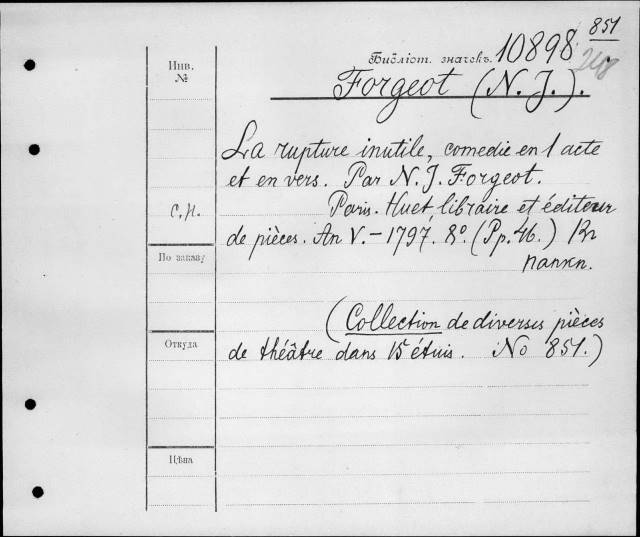 851
Инв.
№
Библіот. значекъ 10898
248
Forgeot (N. J.).
La rupture inutile, comedie en 1 acte
et en vers. Par N. J. Forgeot.
С.Н.
Paris. Huet, libraire et éditeur
de pièces. An V. – 1797. 8º. (Pp. 46.)
По заказу
папкп.
(Collection de diverses pièces
Откуда
de théâtre dans 15 étuis. No 851.)
Цѣна